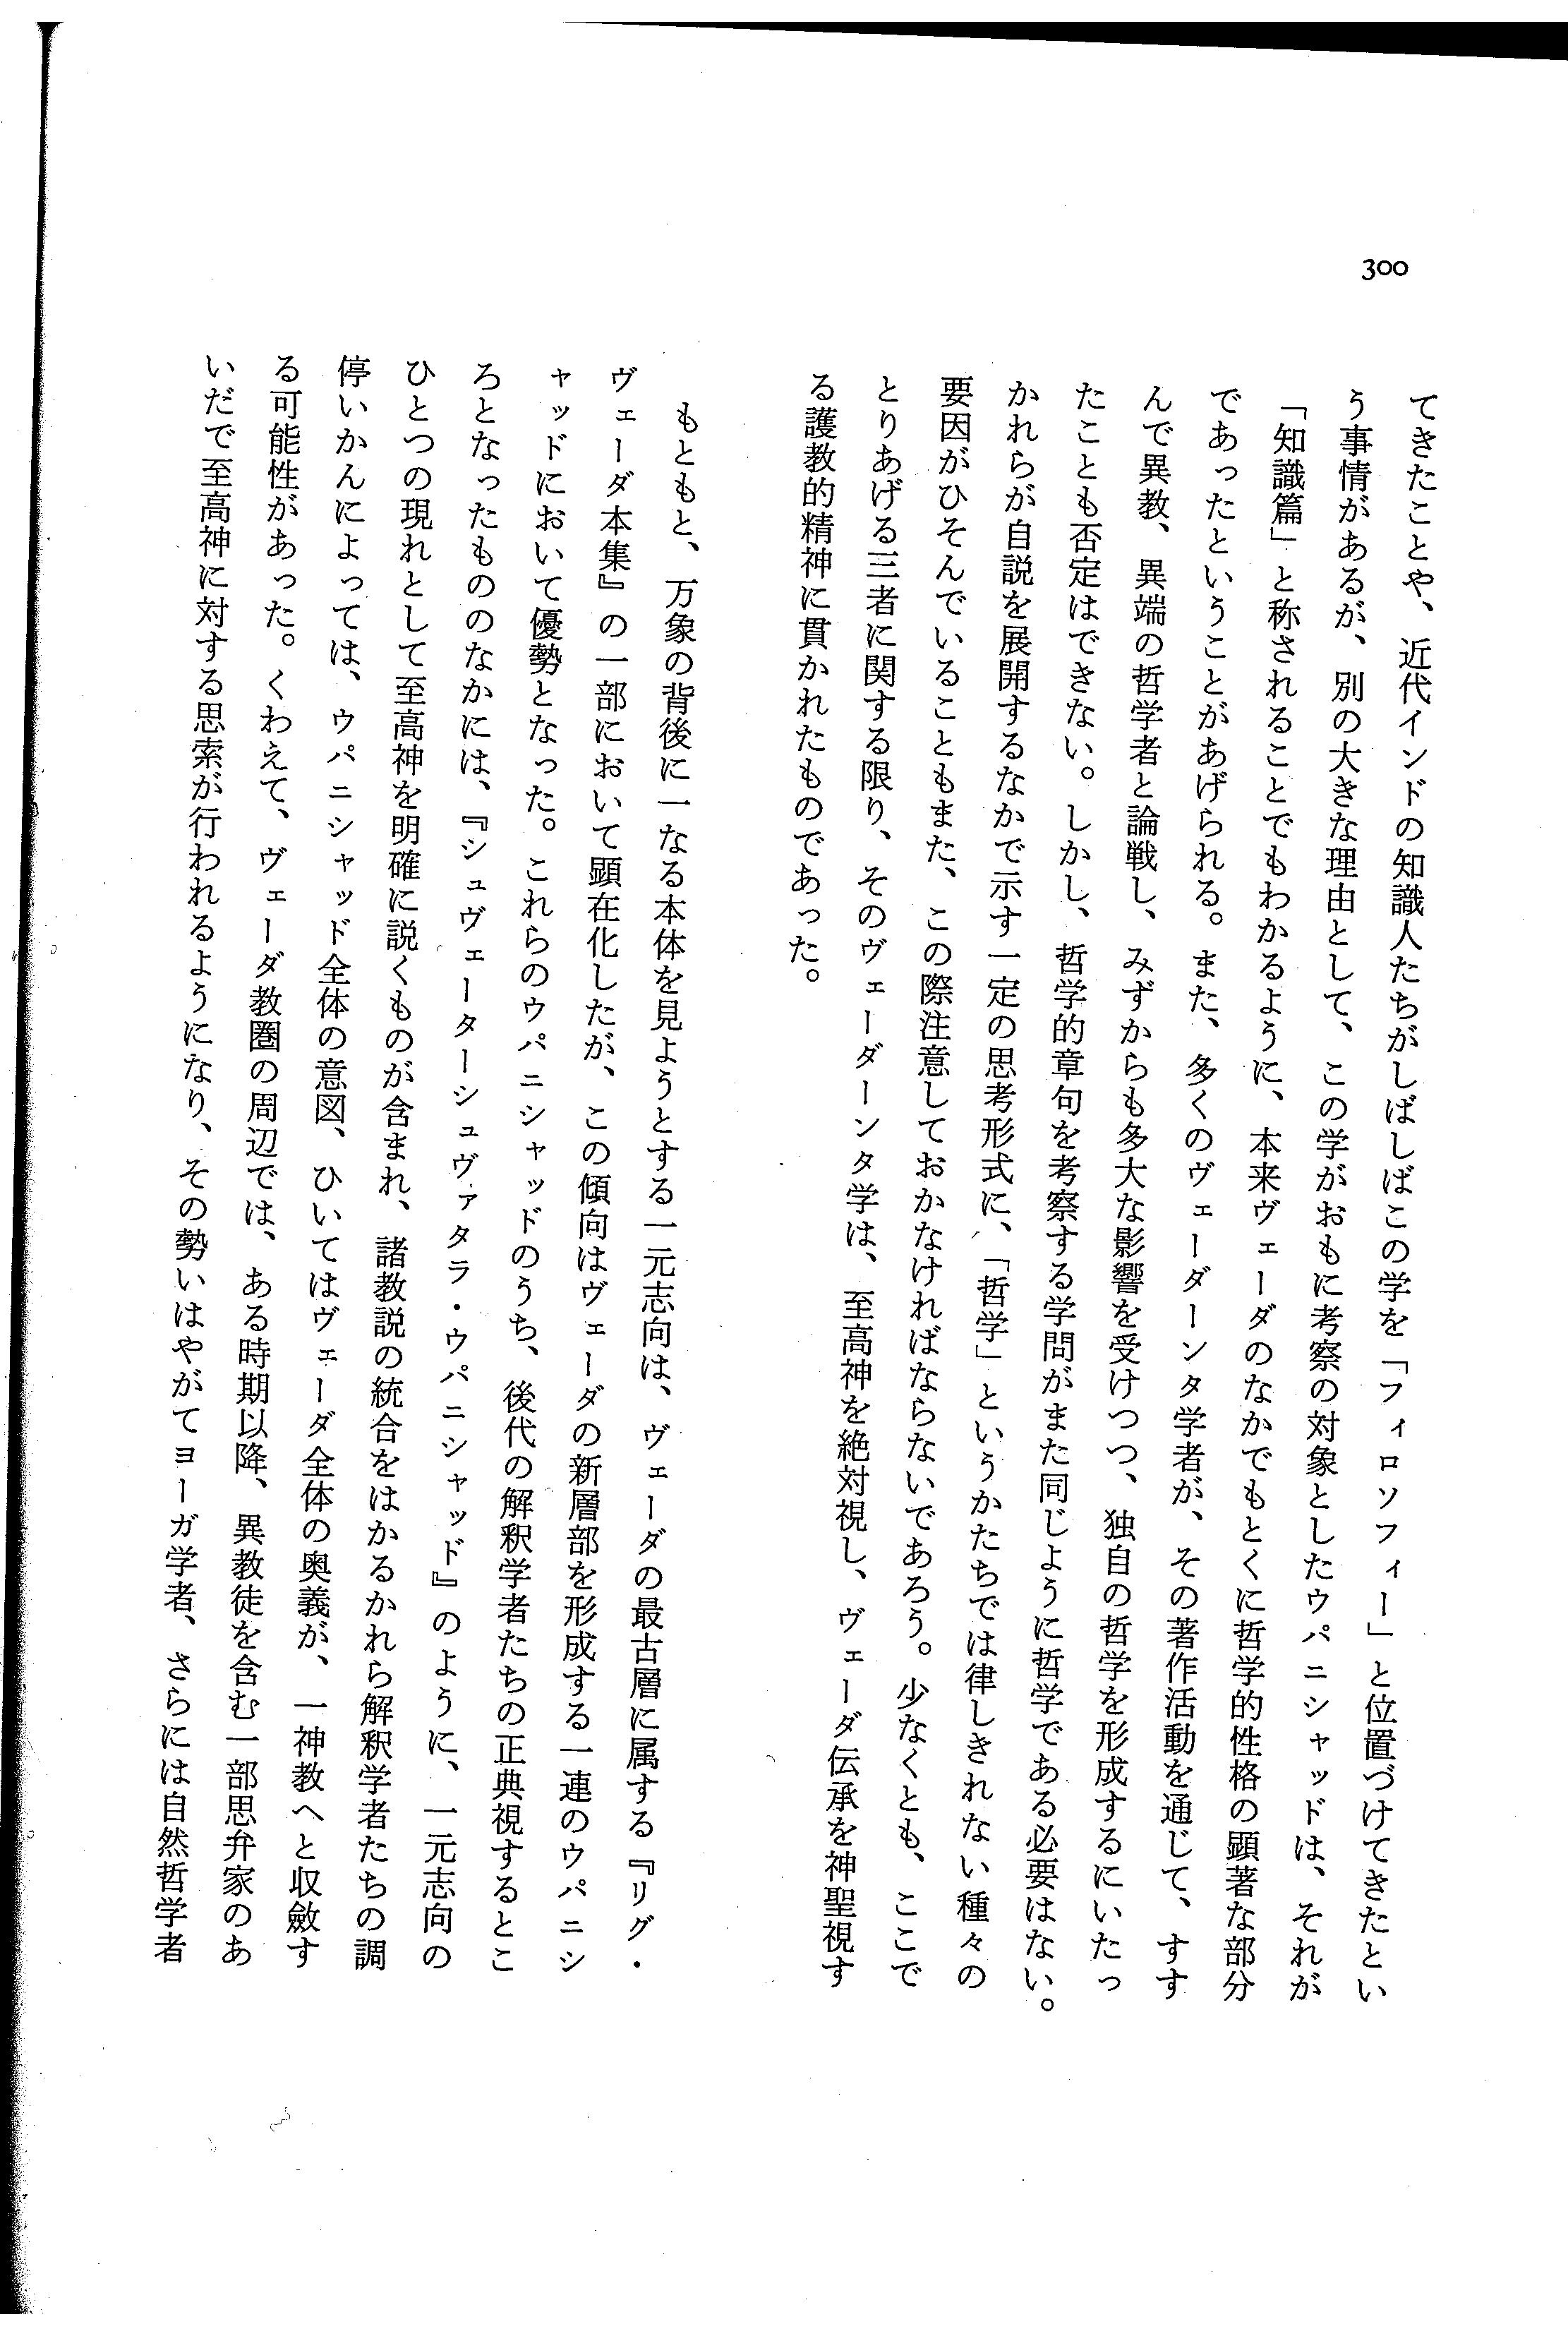 300
てきたことや、近代インドの知識人たちがしばしばこの学を「フィロソフィー」と位置づけてきたとい
う事情があるが、別の大きな理由として、この学がおもに考察の対象としたウパニシャッドは、それが
「知識篇」と称されることでもわかるように、本来ヴェーダのなかでもとくに哲学的性格の顕著な部分
であったということがあげられる。また、多くのヴェーダーンタ学者が、その著作活動を通じて、すす
んで異教、異端の哲学者と論戦し、みずからも多大な影響を受けつつ、独自の哲学を形成するにいたっ
たことも否定はできない。しかし、哲学的章句を考察する学問がまた同じように哲学である必要はない。
かれらが自説を展開するなかで示す一定の思考形式に、「哲学」というかたちでは律しきれない種々の
要因がひそんでいることもまた、この際注意しておかなければならないであろう。少なくとも、ここで
とりあげる三者に関する限り、そのヴェーダーンタ学は、至高神を絶対視し、ヴェーダ伝承を神聖視す
る護教的精神に貫かれたものであった。
もともと、万象の背後に一なる本体を見ようとする一元志向は、ヴェーダの最古層に属する『リグ・
ヴェーダ本集』の一部において顕在化したが、この傾向はヴェーダの新層部を形成する一連のウパニシ
ャッドにおいて優勢となった。これらのウパニシャッドのうち、後代の解釈学者たちの正典視するとこ
ろとなったもののなかには、『シュヴェーターシュヴァタラ・ウパニシャッド』のように、一元志向の
ひとつの現れとして至高神を明確に説くものが含まれ、諸教説の統合をはかるかれら解釈学者たちの調
停いかんによっては、ウパニシャッド全体の意図、ひいてはヴェーダ全体の奥義が、一神教へと収斂す
る可能性があった。くわえて、ヴェーダ教圏の周辺では、ある時期以降、異教徒を含む一部思弁家のあ
いだで至高神に対する思索が行われるようになり、その勢いはやがてヨーガ学者、さらには自然哲学者